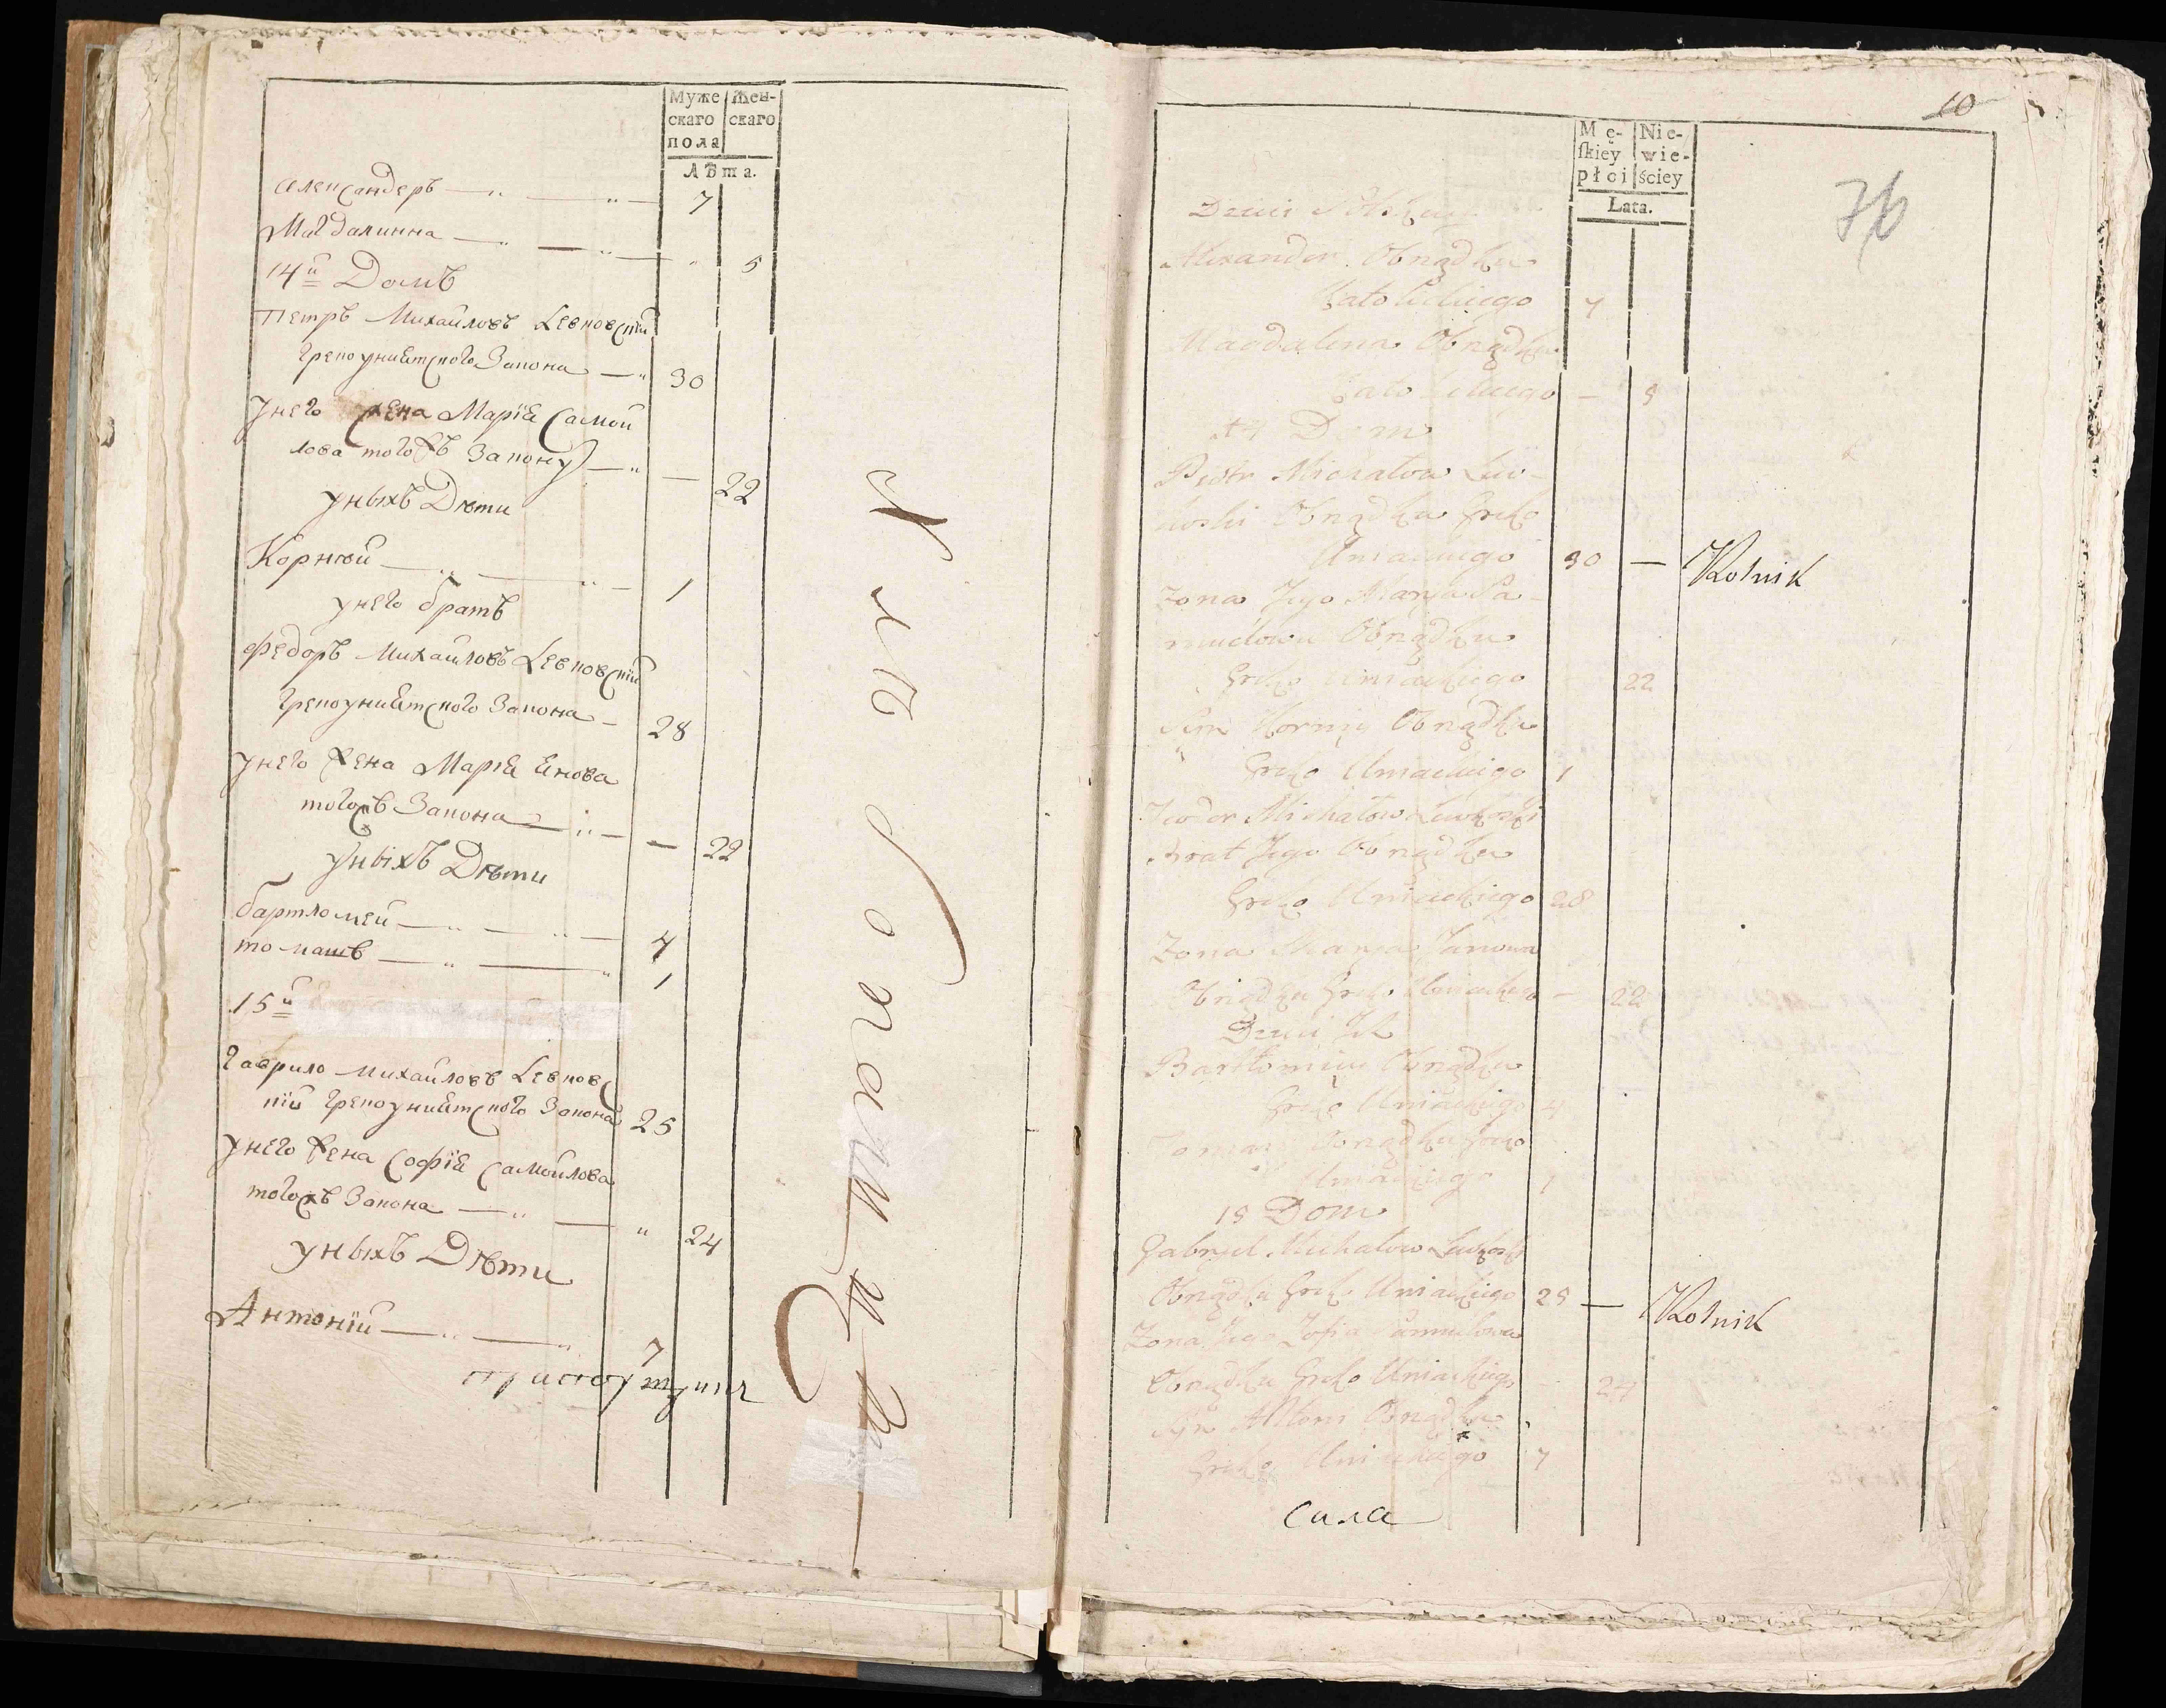 Муже
скаго
пола
Жен-
скаго
Лѣта.
александеръ 7
Магдалинна 5
14й Домъ
Петръ Михайловъ Левковскій
грекоуниѣтского Закона 30
унего жена Маріѣ Самой
лова тогожъ Закону 22
уныхъ Дѣти
Корнѣй 1
унего братъ
Федоръ Михайловъ Левковскій
грекоуниѣтского Закона 28
унего жена Маріѣ
тогожъ Закона 22
уныхъ Дѣти
бартломей 4
томашъ 1
15й
Гаврило Михайловъ Левковс
кій грекоуниѣтского Закона 25
унего жена Софіѣ Самойлова
тогожъ Закона 24
уныхъ Дѣти
Антоній 7
10
76
Mę-
ſkiey
płci
Nie-
wie-
ściey
Lata.
Dzieci
Alexander Obrządku
Katolickiego 7
Magdalena Obrządku
Katolickiego 5
14 Dom
Piotr Michałow Lew-
koski Obrządku Greko
Uniackiego 30 — Rolnik
Zona Jego Marja Sa-
muelowa Obrządku
Greko Uniackiego 22
Syn Korniy Obrządku
Greko Uniackiego 1
Teodor Michałow Lewkoski
Brat Jego Obrządku
Greko Uniackiego 28
Zona Marja Janowa
Obrządku Greko Uniackiego 22
Dzieci Ich
Bartłomiey Obrządku
Greko Uniackiego 4
Tomasz Obrządku Greko
Uniackiego 1
15 Dom
Gabryel Michałow Lewkoski
Obrządku Greko Uniackiego 25 — Rolnik
Zona Jego Zofia Samuelowa
Obrządku Greko Uniackiego 24
Syn Antoni Obrządku
Greko Uniackiego 7
сила